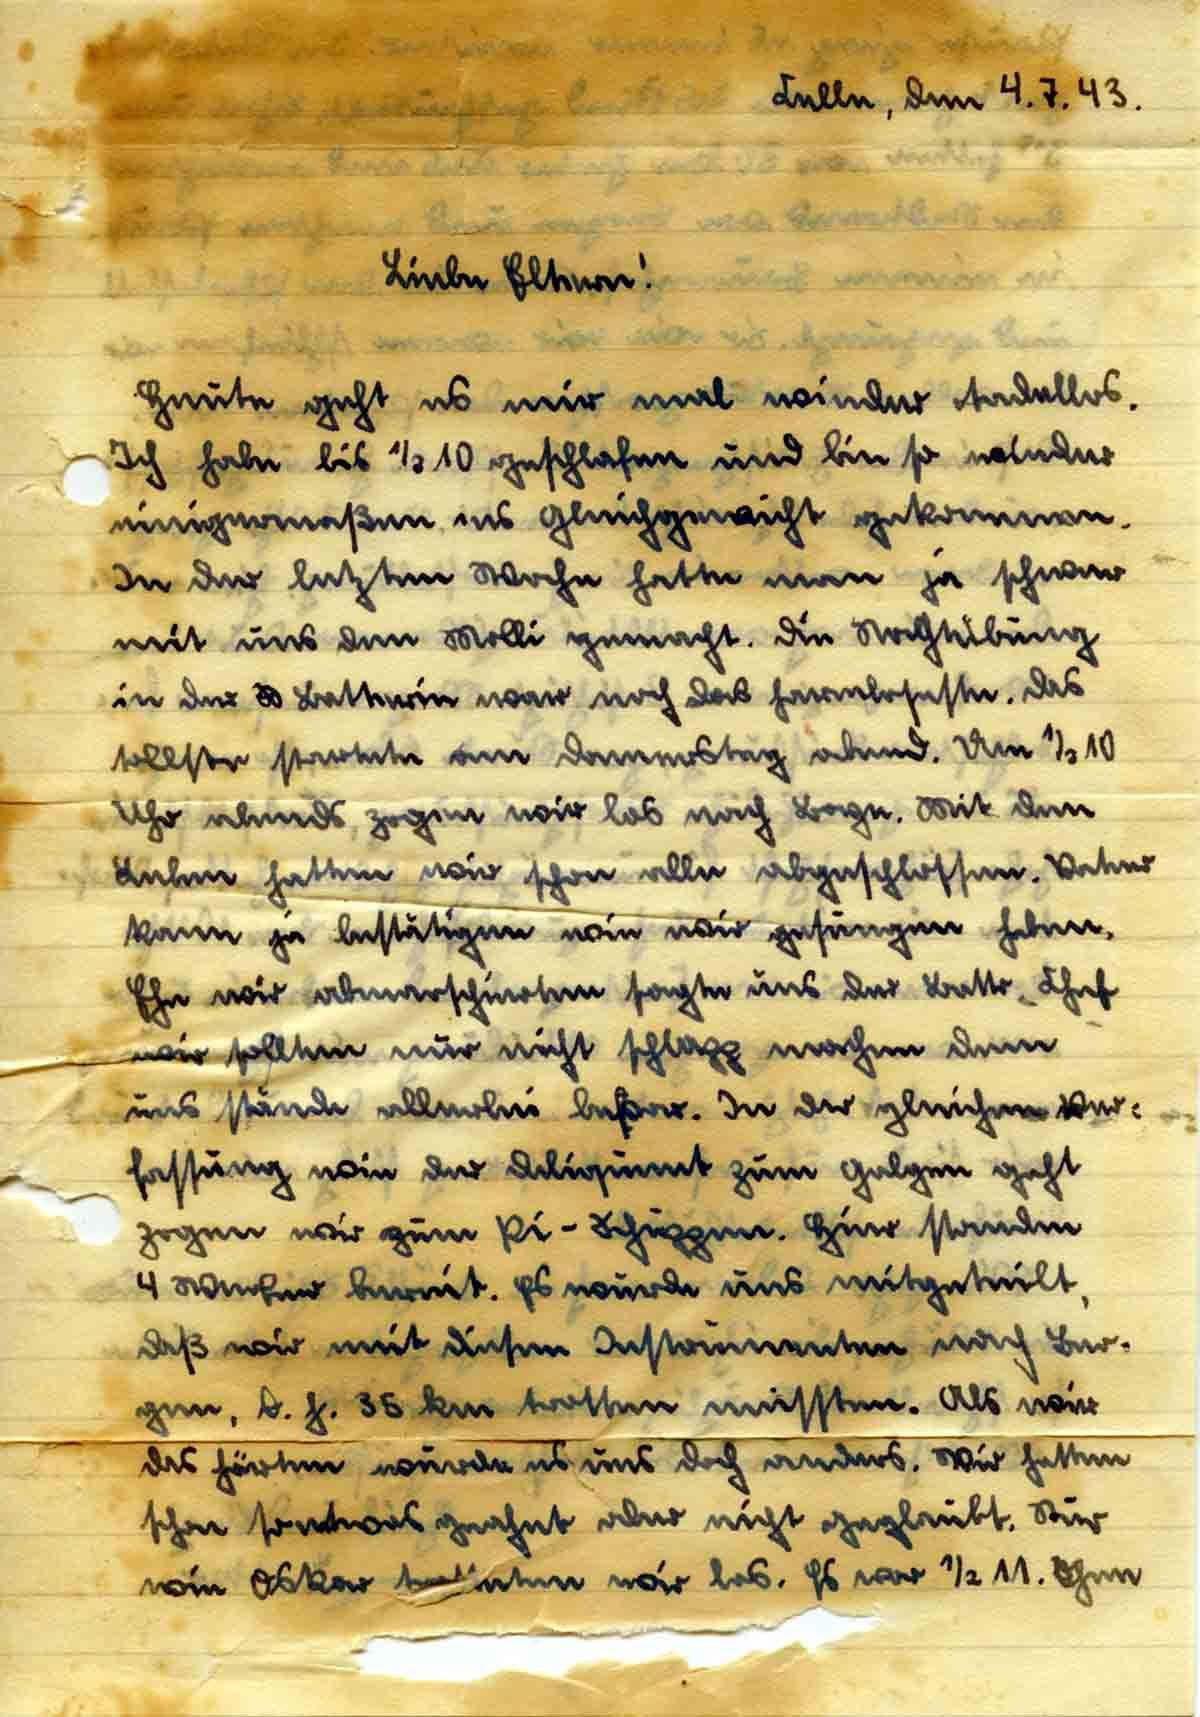 Celle, den 4.7.43.
Liebe Eltern!
Heute geht es mir mal wieder tadellos.
Ich habe bis 1/2 10 geschlafen und bin so wieder
einigermaßen ins Gleichgewicht gekommen.
In der letzten Woche hatte man ja schwer
mit uns den Molli gemacht. Die Nachtübung
in der Batterie war noch das harmloseste. Das
tollste startete am Donnerstag abend. Um 1/2 10
Uhr abends zogen wir los nach Boye. Mit dem
Leben hatten wir schon alle abgeschlossen. Vater
kann ja bestätigen wie wir gesungen haben.
Ehe wir abmarschierten sagte uns der Battr. Chef
wir sollten nur nicht schlapp machen denn
uns stände allerlei bevor. In der gleichen Ver:
fassung wie der Deliquent zum Galgen geht
zogen wir zum Pi-Schuppen. Hier standen
4 Werfer bereit. Es wurde uns mitgeteilt,
daß wir mit diesen Instrumenten nach Ber-
gen, d. h. 35 km trotten müssten. Als wir
das hörten wurde es uns doch anders. Wir hatten
schon sowas geahnt aber nicht geglaubt. Stur
wie Oskar wir los. Es war 1/2 11. Ohne